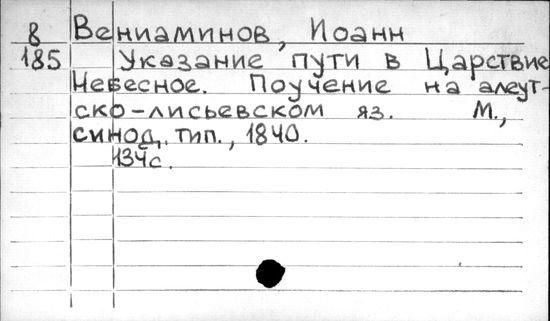 8 Вениаминов, Иоанн
185 Указание пути в Царствие
Небесное. Поучение на алеут-
ско-лисьевском яз. М.,
синод. тип., 1840.
134с.